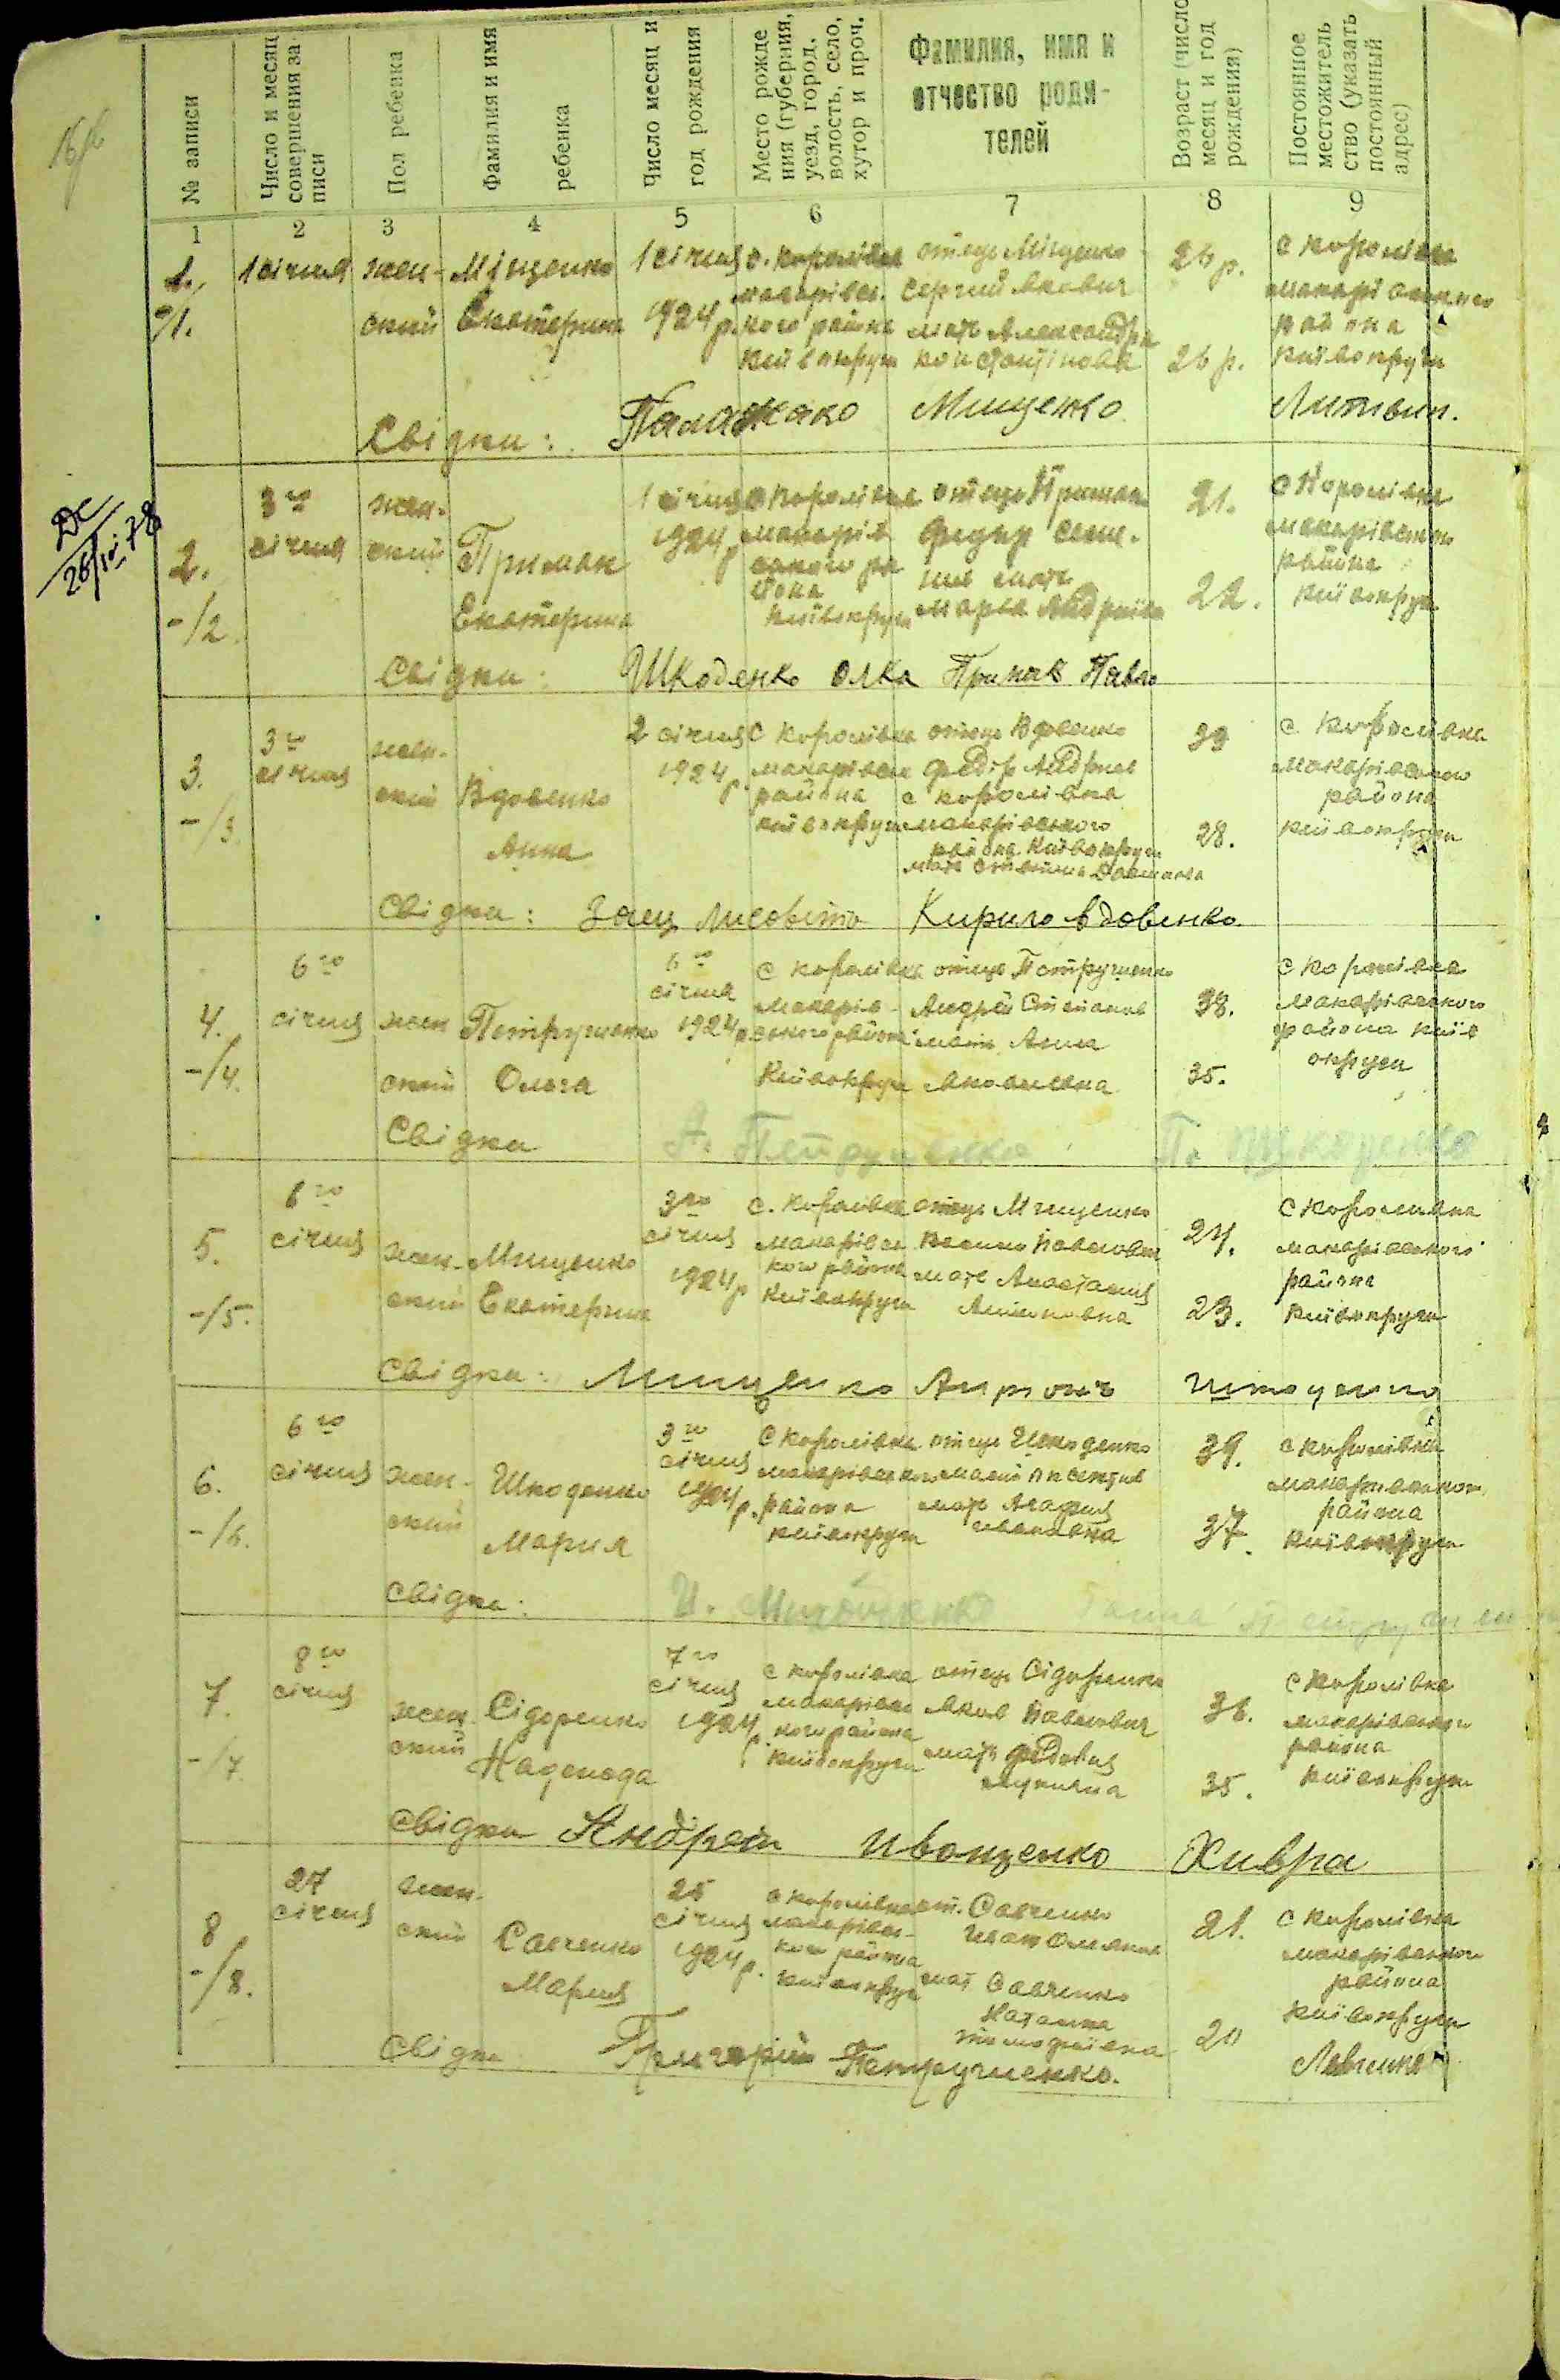 № записи
Число и месяц
совершения за
писи
Пол ребенка
Фамилия и имя
ребенка
Число месяц и
год рождения
Место рожде
ния (губерния,
уезд, город,
волость, село,
хутор и проч.
Фамилия, имя и
отчество роди-
телей
Возраст (число
месяц и год
рождения)
Постоянное
местожитель
ство (указать
постоянный
адрес)
1 2 3 4 5 6 7 8 9
1.
1 січня
жен-
ский
Міщенко
Екатерина
1 січня
1924 р.
с. королівка
макарівс.
кого района
київокруги
отець Міщенко
сергий Акович
мать Александра
константінова
26 р.
26 р.
с королівка
макарівського
района
київокруги
Свідки: Мищенко Литвин.
ДС
2.
-/2.
3го
січня
жен-
ский
Примак
Екатерина
1 січня
1924 р
с королівка
макарів
ського ра
йона
київокруги
отець Примак
федир
мать
марья Андриївна
21.
22.
с королівка
макарівського
района
київокруги
Свідки: Шкоденко Олка Примак Павло
3.
-/3.
3го
січня
жен-
ский
Вдовенко
Анна
2 січня
1924 р.
с королівка
макарівськ
района
київокруги
отець Вдовенко
федір Андриев
с королівка
макарівського
района київокруги
мать
39
28.
с королівка
макарівського
района
київокруги
Свідки: Заец Кирило вдовенко.
4.
-/4.
6го
січня
жен
ский
Петрушенко
Ольга
6го
січня
1924 р.
с королівка
макарів-
ського района
київокруги
отець Петрушенко
Андрій Степанов
мать Анна
Яковлевна
38.
35.
с королівка
макарівського
района київ
округи
Свідки А. Петрушенко П. Шкоденко
5.
-/5.
6го
січня
жен-
ский
Мищенко
Екатерина
3го
січня
1924 р
с. королівка
макарівс
кого района
київокруги
отець Мищенко
Павлович
мать Анастасия
Антоновна
24.
23.
с королівка
макарівського
района
київокруги
Свідки: Мищенко
6.
-/6.
6го
січня
жен-
ский
Шкоденко
Мария
3го
січня
1924 р.
с королівка
макарівського
района
київокруги
отець Шкоденко
мать Агафия
ивановна
39.
37.
с королівка
макарівського
района
київокруги
Свідки:
7.
-/7.
8го
січня
жен-
ский
Сідоренко
Надежда
7го
січня
1924 р.
с королівка
макарівс
кого района
київокруги
отець Сідоренко
Яков Павлович
мать федосия
36.
35.
с королівка
макарівського
района
київокруги
Свідки Андрей Иващенко Хивра
8
-/8.
27
січня
жен-
ский
Савченко
Мария
25
січня
1924 р.
с королівка
макарівс-
кого района
київокруги
от. Савченко
Иван
мат Савченко
Наталка
тімофиївна
21.
20
с королівка
макарівського
района
київокруги
Свідки Григорій Петрушенко. Левченко